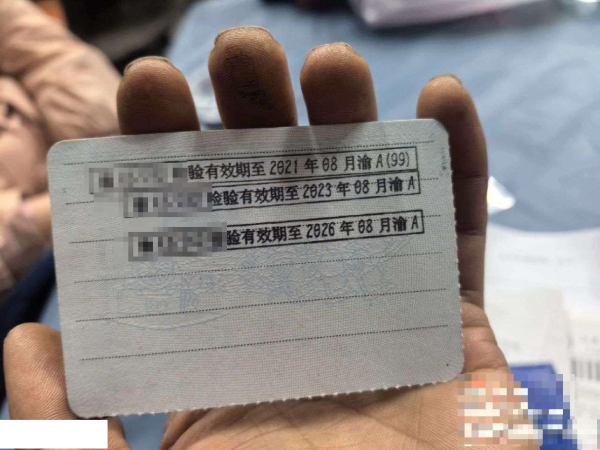 验有效期至 2021 年 08 月渝 A(99)
验有效期至 2023 年 08 月渝 A
验有效期至 2026 年 08 月渝 A